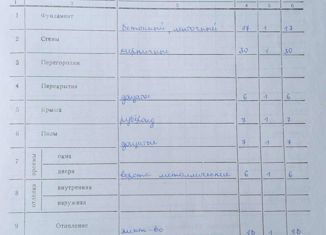 1 2 3 4 5 6
1 Фундамент бетонный, ленточный 17 1 17
2 Стены кирпичные 30 1 30
3 Перегородки
4 Перекрытия дощатые 6 1 6
5 Крыша рубероид 7 1 7
6 Полы дощатые 7 1 7
7 проемы окна
двери ворота металлические 6 1 6
8 отделка внутренняя
наружная
9 Отопление